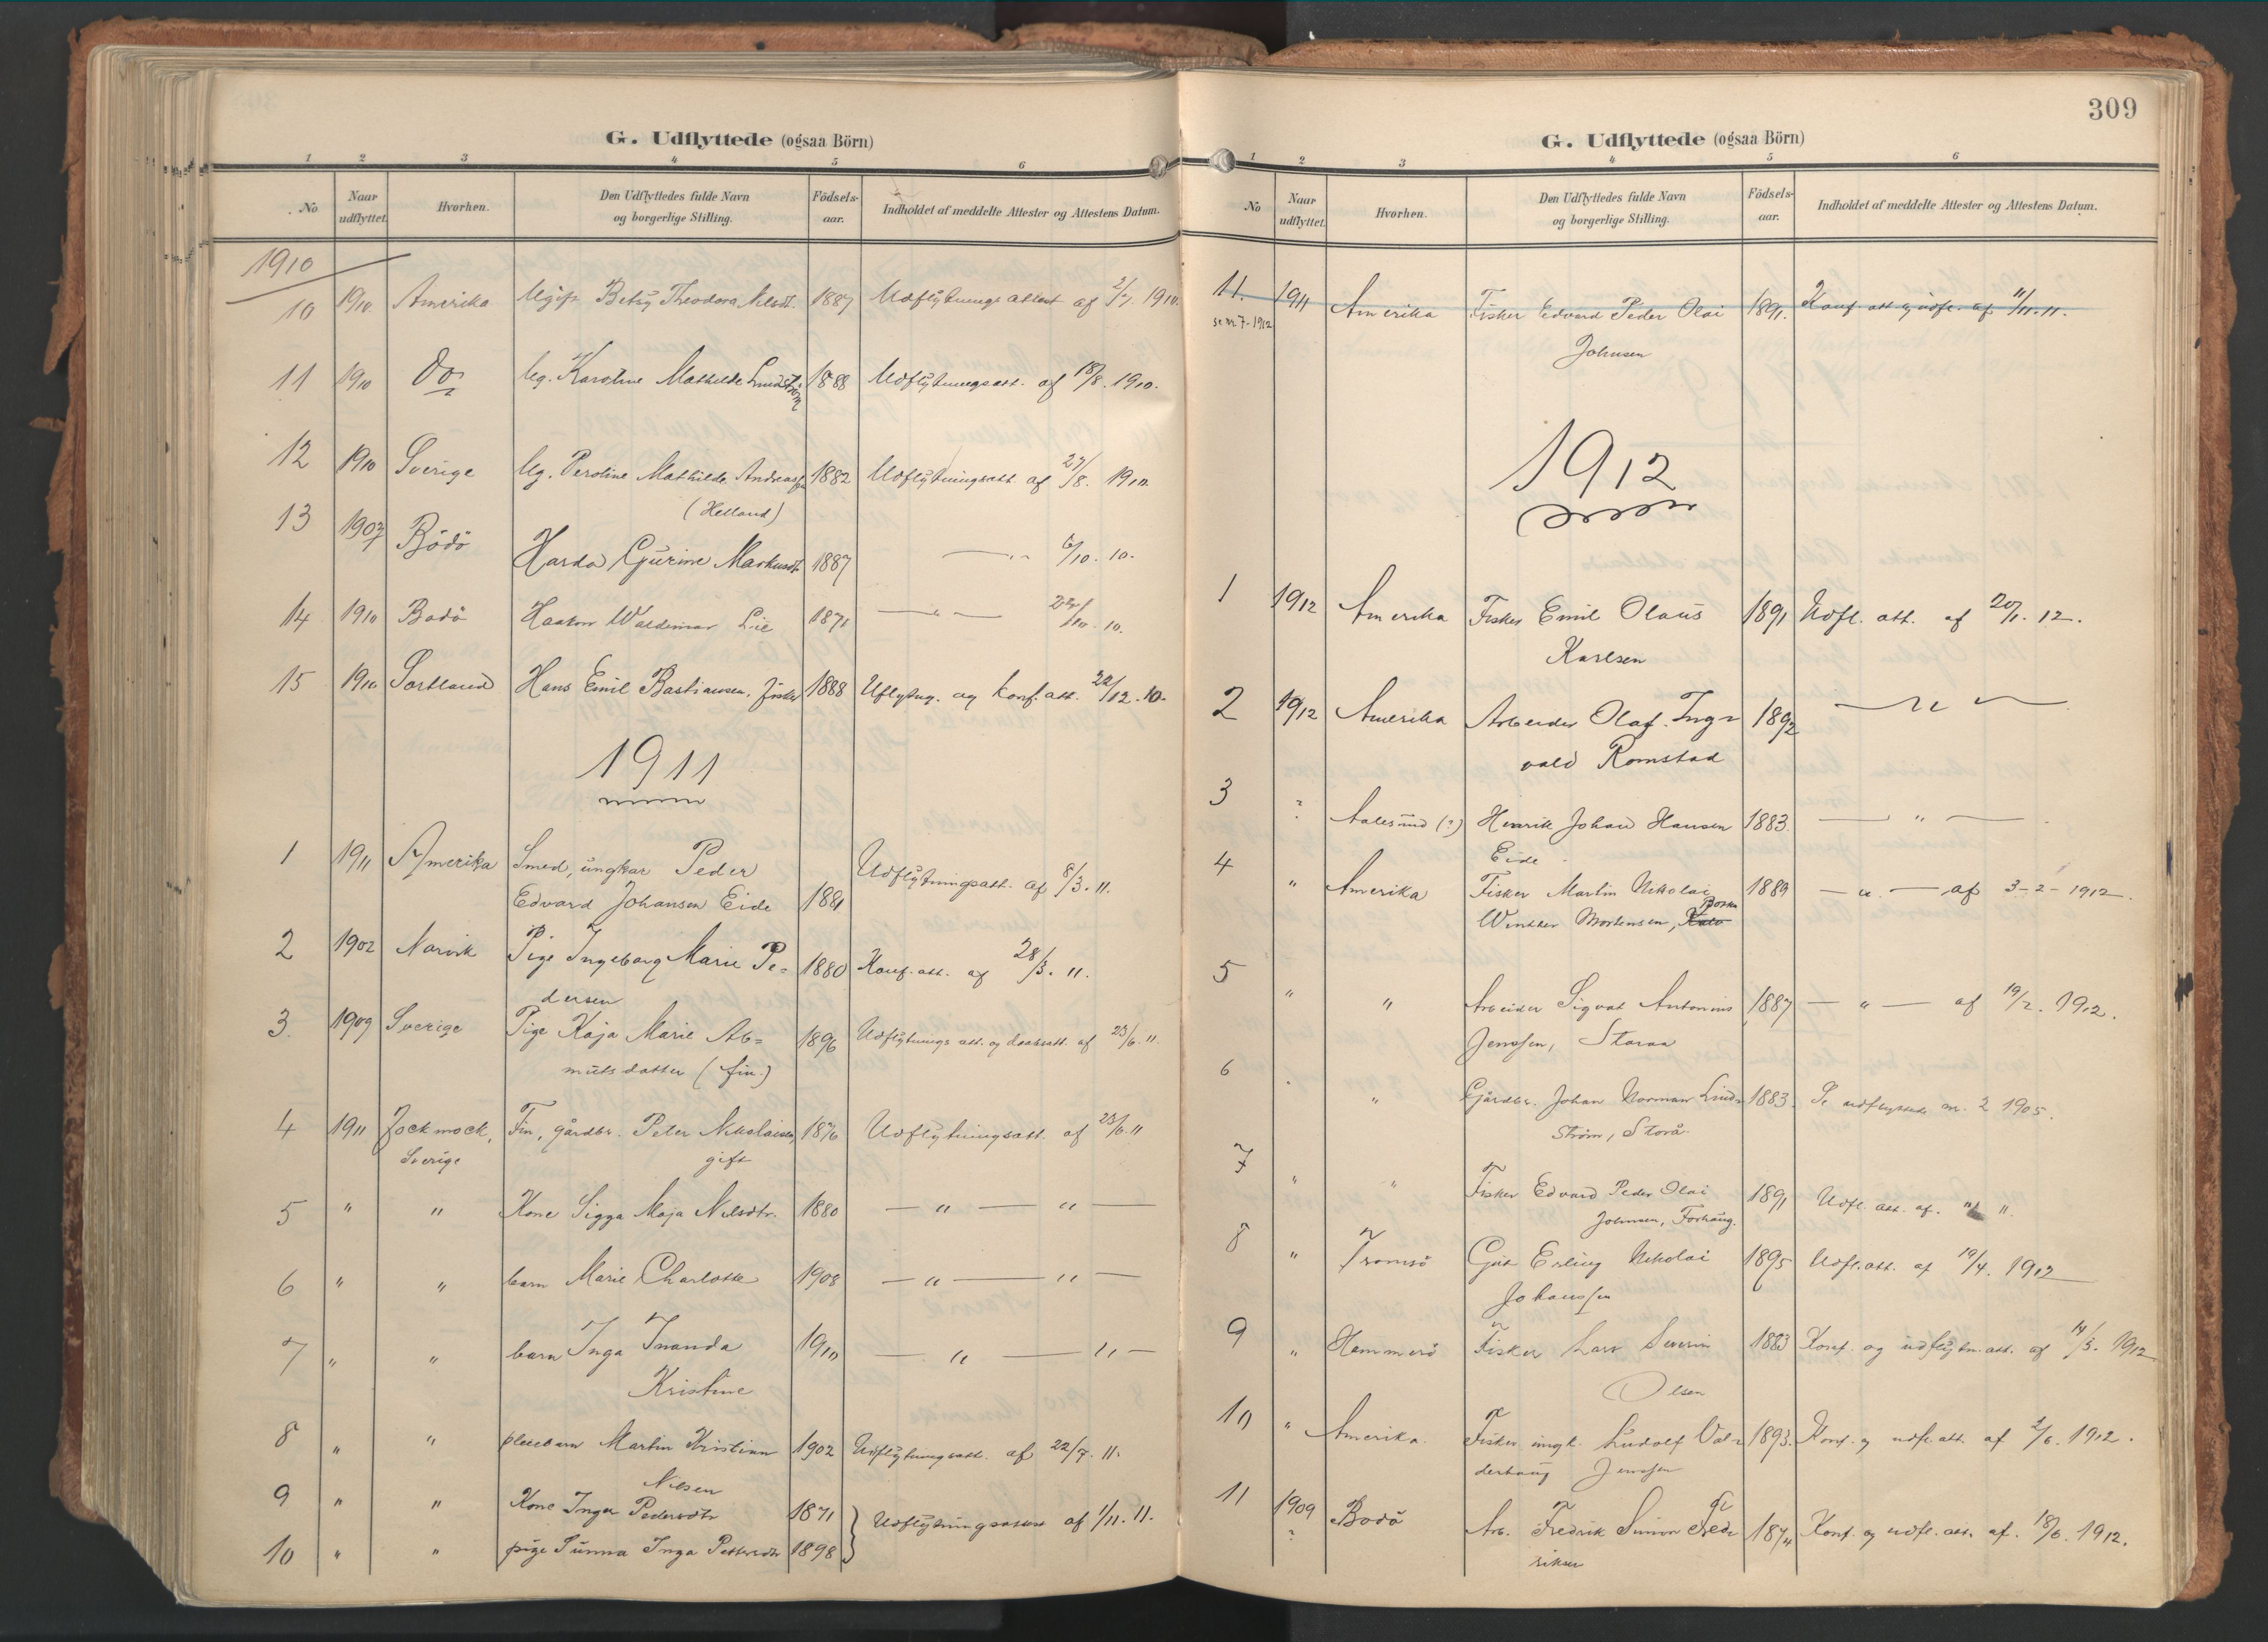 G. Udflyttede (ogsaa Börn)
1 2 3 4 5 6
No Naar udflyttet. Hvorhen. Den Udflyttedes fulde Navn og borgerlige Stilling. Födsels-aar. Indholdet af meddelte Attester og Attestens Datum.
1910
10 1910 Amerika Ugift Betsy Theodora Nilsdt. 1887 Udflytnings attest af 2/7. 1910.
11 1910 Do Ug. Karoline Mathilde Lindström 1888 Udflytningsatt. af 18/8. 1910.
12 1910 Sverige Ug. Peroline Mathilde 1882 Udflytningsatt. af 27/8. 1910.
(Helland)
13 1907 Bödö Harda Gjurine Markusdt. 1887 — " — 6/10. 10.
14 1910 Bodö Haakon Waldemar Lie 1871 — " — 10.
15 1910 Sortland Hans Emil Bastiansen. fisker 1888 Uflytng. og konf. att. 22/12. 10.
1911
1 1911 Amerika Smed, ungkar Peder
Edvard Johansen Eide 1881 Udflytningsatt. af 8/3. 11.
2 1902 Narvik Pige Ingeborg Marie Pe= 1880 Konf. att. af 28/3. 11.
dersen
3. 1909 Sverige Pige Kaja Marie Ab= 1896 Udflytnings att. og daabsatt. af 23/6. 11.
mutsdatter (fin.)
4 1911 Jockmock, Fin, gårdbr. Peter Nikolaisen, 1876 Udflytningsatt. af 23/6. 11
Sverige gift
5 " " Kone Sigga Maja Nilsdtr. 1880 — " — " —
6 " " barn Marie Charlotte 1908 — " — " —
7 " " barn Inga Inanda 1910 — " — " —
Kristine
8 " " pleiebarn Martin Kristian 1902 Udflytningsatt. af 22/7. 11.
Nilsen
9 " " Kone Inger Pedersdtr 1871 } Udflytningsattest af 1/11. 11.
10 " " pige Sunna Inga Pettersdtr 1898
309
G. Udflyttede (ogsaa Börn)
1 2 3 4 5 6
No Naar udflyttet. Hvorhen. Den Udflyttedes fulde Navn og borgerlige Stilling. Födsels-aar. Indholdet af meddelte Attester og Attestens Datum.
11. 1911 Amerika Fisker Edvard Peder Olai 1891. Konf. att og udfl. af 11/11. 11.
se nr 7 - 1912
Johnsen
1912
1 1912 Amerika Fisker Emil Olaus 1891 Udfl. att. af 20/1. 12.
Karlsen
2 1912 Amerika Arbeider Olaf Ing= 1892 — " —
vald Romstad
3 ? Aalesund (?) Henrik Johan Hansen 1883. — " —
Eide
4 " Amerika Fisker Martin Nikolai 1889 — " — af 3-2-1912.
Winther Mortensen,
5 " " Arbeider Sigvat Antonius 1887 — " — af 19/2. 1912.
Jenssen, Staraa
6 " Gårdbr. Johan Norman Lind= 1883. Se udflyttede nr. 2 1905.
ström, Storå.
7 " " Fisker Edvard Peder Olai 1891 Udfl. att. af. 11.
Johnsen, Forhaug.
8 " Tromsö Gut Erling Nikolai 1895 Udfl. att. af 19/4. 1912
Johanssen
9 " Hammerö Fisker Lars Severin 1883 Konf. og udflytn. att. af 14/5. 1912
Olsen
10 " Amerika. Fisker ungk. Ludolf Val= 1893. Konf. og udfl. att. af 2/6. 1912.
derhaug Jenssen
11 1909 Bodö Arb. Fredrik Simon Fred= 1874 Konf. og udfl. att. af. 18/6. 1912.
?
riksen